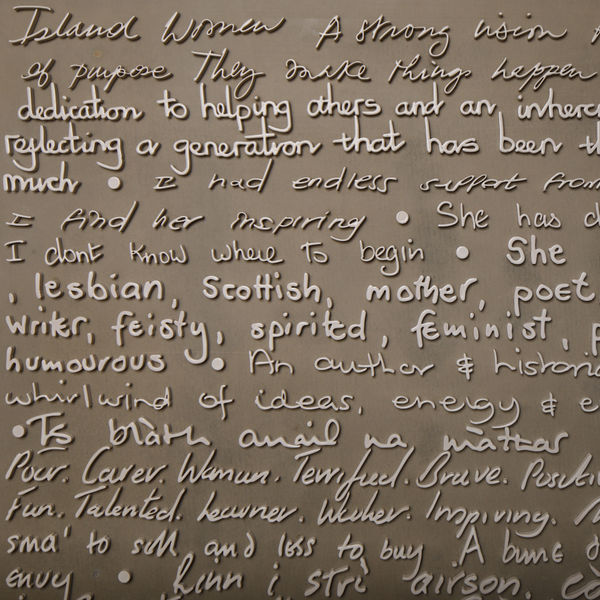 Island Women A strong vision
of purpose They make things happen
dedication to helping others and an inher
reflecting a generation that has been th
much • I had endless support from
I find her inspiring • She has d
I dont know where to begin • She
, lesbian, Scottish, mother, poet
writer, feisty, spirited, feminist, p
humourous • An author & historia
whirlwind of ideas, energy & e
• Is blàth anail na màthar
Poor. Carer. Woman. Terrified. Brave. Positiv
Fun. Talented. Learner. Worker. Inspiring.
sma' to sell and less to buy A
envy • Linn i strì airson, co